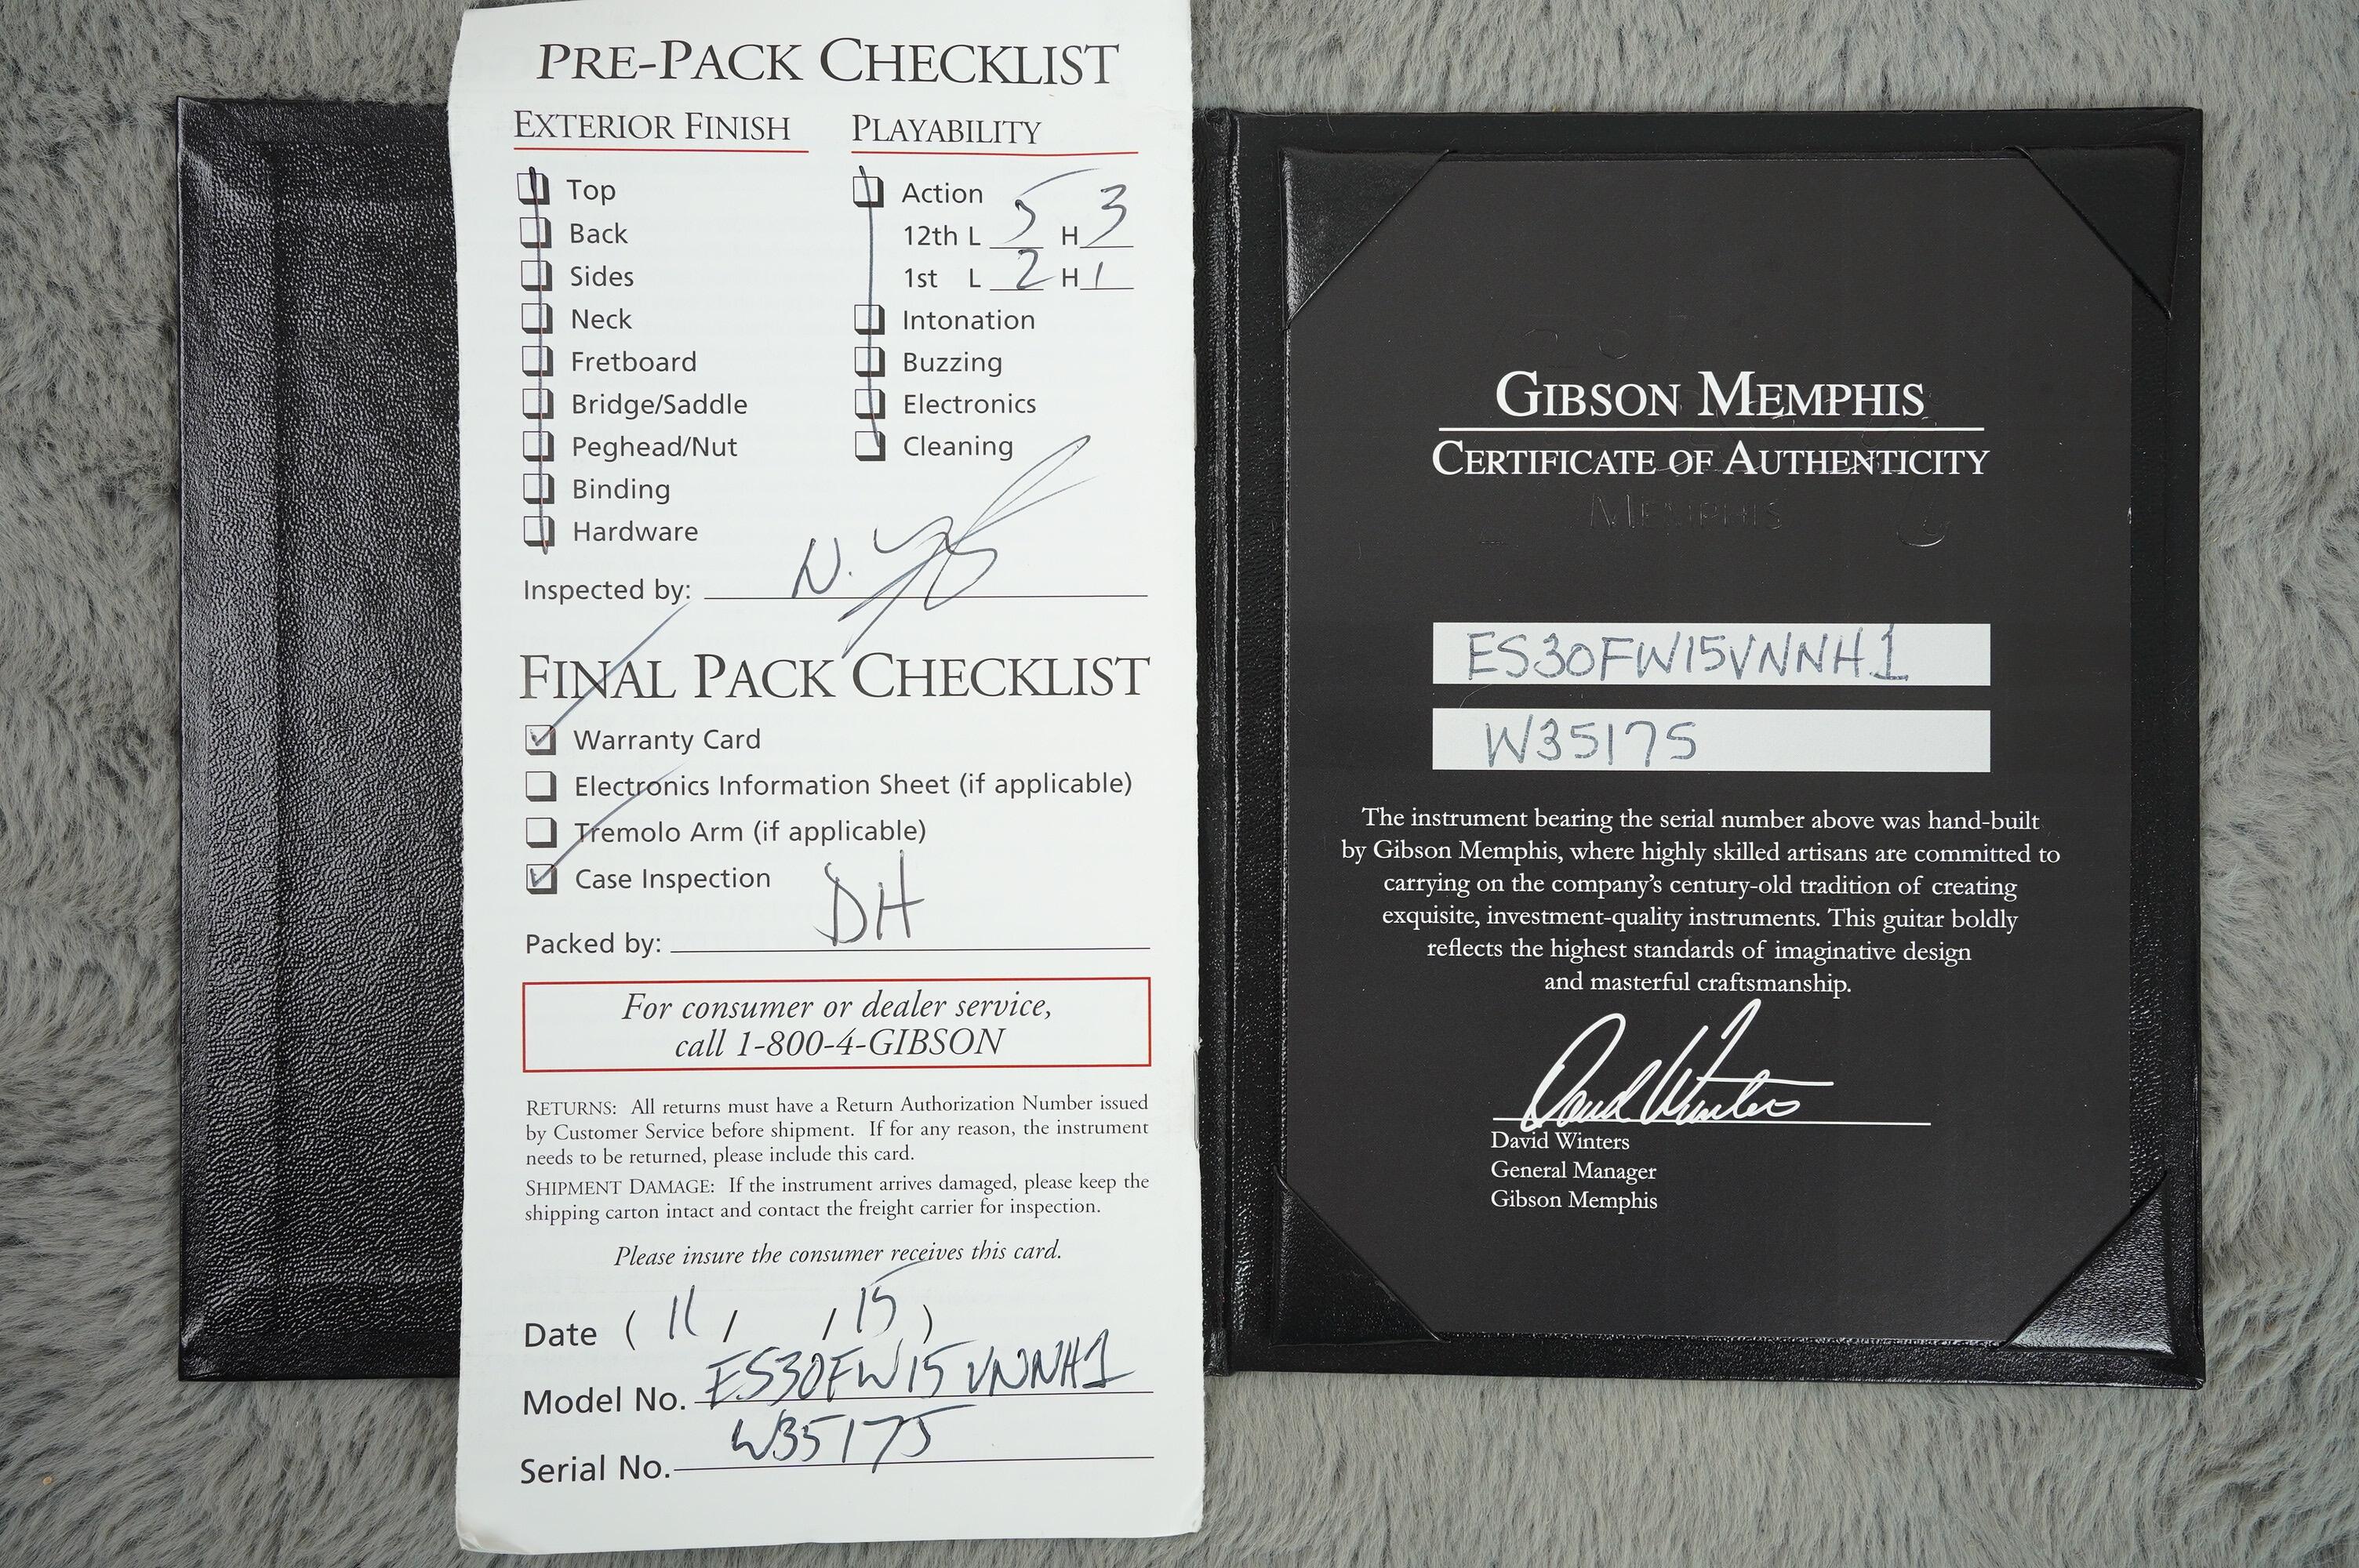 PRE-PACK CHECKLIST
EXTERIOR FINISH
Top
Back
Sides
Neck
Fretboard
Bridge/Saddle
Peghead/Nut
Binding
Hardware
PLAYABILITY
Action
12th L 5 H 3
1st L 2 H 1
Intonation
Buzzing
Electronics
Cleaning
Inspected by: N.
FINAL PACK CHECKLIST
Warranty Card
Electronics Information Sheet (if applicable)
Tremolo Arm (if applicable)
Case Inspection
Packed by: DH
For consumer or dealer service,
call 1-800-4-GIBSON
RETURNS: All returns must have a Return Authorization Number issued
by Customer Service before shipment. If for any reason, the instrument
needs to be returned, please include this card.
SHIPMENT DAMAGE: If the instrument arrives damaged, please keep the
shipping carton intact and contact the freight carrier for inspection.
Please insure the consumer receives this card.
Date ( 11 / / 15 )
Model No. ES30FW15VNNH1
Serial No. W35175
GIBSON MEMPHIS
CERTIFICATE OF AUTHENTICITY
MEMPHIS
ES30FW15VNNH1
W35175
The instrument bearing the serial number above was hand-built
by Gibson Memphis, where highly skilled artisans are committed to
carrying on the company's century-old tradition of creating
exquisite, investment-quality instruments. This guitar boldly
reflects the highest standards of imaginative design
and masterful craftsmanship.
David Winters
David Winters
General Manager
Gibson Memphis